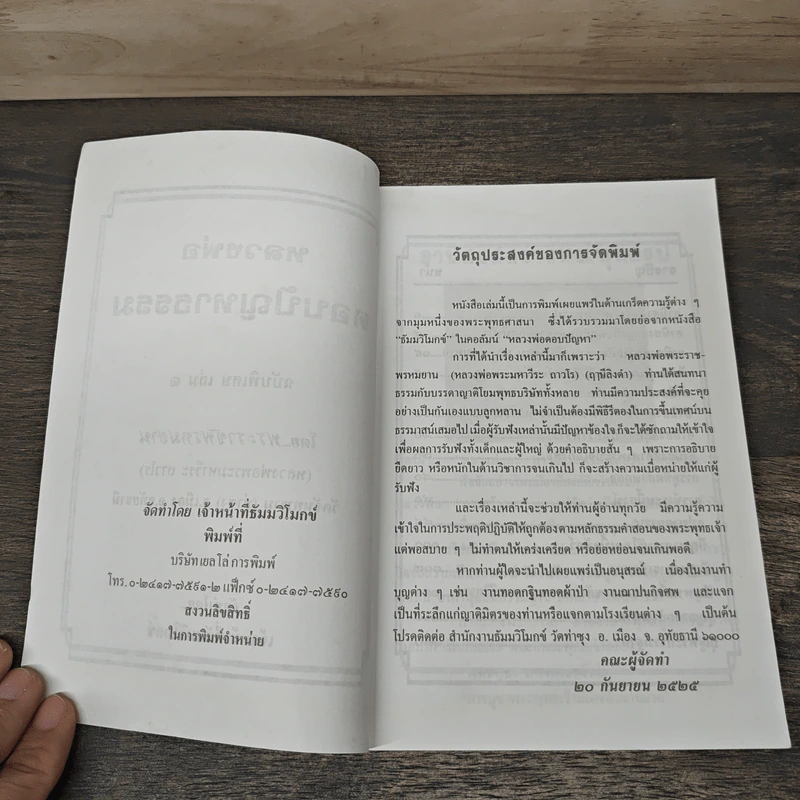 จัดทำโดย เจ้าหน้าที่ธัมมวิโมกข์
พิมพ์ที่
บริษัทเยลโล่การพิมพ์
โทร. ๐-๒๔๑๗-๗๕๙๑-๒ แฟ็กซ์ ๐-๒๔๑๗-๗๕๙๐
สงวนลิขสิทธิ์
ในการพิมพ์จำหน่าย
วัตถุประสงค์ของการจัดพิมพ์
หนังสือเล่มนี้เป็นการพิมพ์เผยแพร่ในด้านเกร็ดความรู้ต่าง ๆ
จากมุมหนึ่งของพระพุทธศาสนา ซึ่งได้รวบรวมมาโดยย่อจากหนังสือ
“ธัมมวิโมกข์” ในคอลัมน์ “หลวงพ่อตอบปัญหา”
การที่ได้นำเรื่องเหล่านี้มาก็เพราะว่า หลวงพ่อพระราช-
พรหมยาน (หลวงพ่อพระมหาวีระ ถาวโร) (ฤๅษีลิงดำ) ท่านได้สนทนา
ธรรมกับบรรดาญาติโยมพุทธบริษัททั้งหลาย ท่านมีความประสงค์ที่จะคุย
อย่างเป็นกันเองแบบลูกหลาน ไม่จำเป็นต้องมีพิธีรีตองในการขึ้นเทศน์บน
ธรรมาสน์เสมอไป เมื่อผู้รับฟังเหล่านั้นมีปัญหาข้องใจ ก็จะได้ซักถามให้เข้าใจ
เพื่อผลการรับฟังทั้งเด็กและผู้ใหญ่ ด้วยคำอธิบายสั้น ๆ เพราะการอธิบาย
ยืดยาว หรือหนักในด้านวิชาการจนเกินไป ก็จะสร้างความเบื่อหน่ายให้แก่ผู้
รับฟัง
และเรื่องเหล่านี้จะช่วยให้ท่านผู้อ่านทุกวัย มีความรู้ความ
เข้าใจในการประพฤติปฏิบัติให้ถูกต้องตามหลักธรรมคำสอนของพระพุทธเจ้า
แต่พอสบาย ๆ ไม่ทำตนให้เคร่งเครียด หรือย่อหย่อนจนเกินพอดี
หากท่านผู้ใดจะนำไปเผยแพร่เป็นอนุสรณ์ เนื่องในงานทำ
บุญต่าง ๆ เช่น งานทอดกฐินทอดผ้าป่า งานฌาปนกิจศพ และแจก
เป็นที่ระลึกแก่ญาติมิตรของท่านหรือแจกตามโรงเรียนต่าง ๆ เป็นต้น
โปรดติดต่อ สำนักงานธัมมวิโมกข์ วัดท่าซุง อ. เมือง จ. อุทัยธานี ๖๑๐๐๐
คณะผู้จัดทำ
๒๐ กันยายน ๒๕๒๕